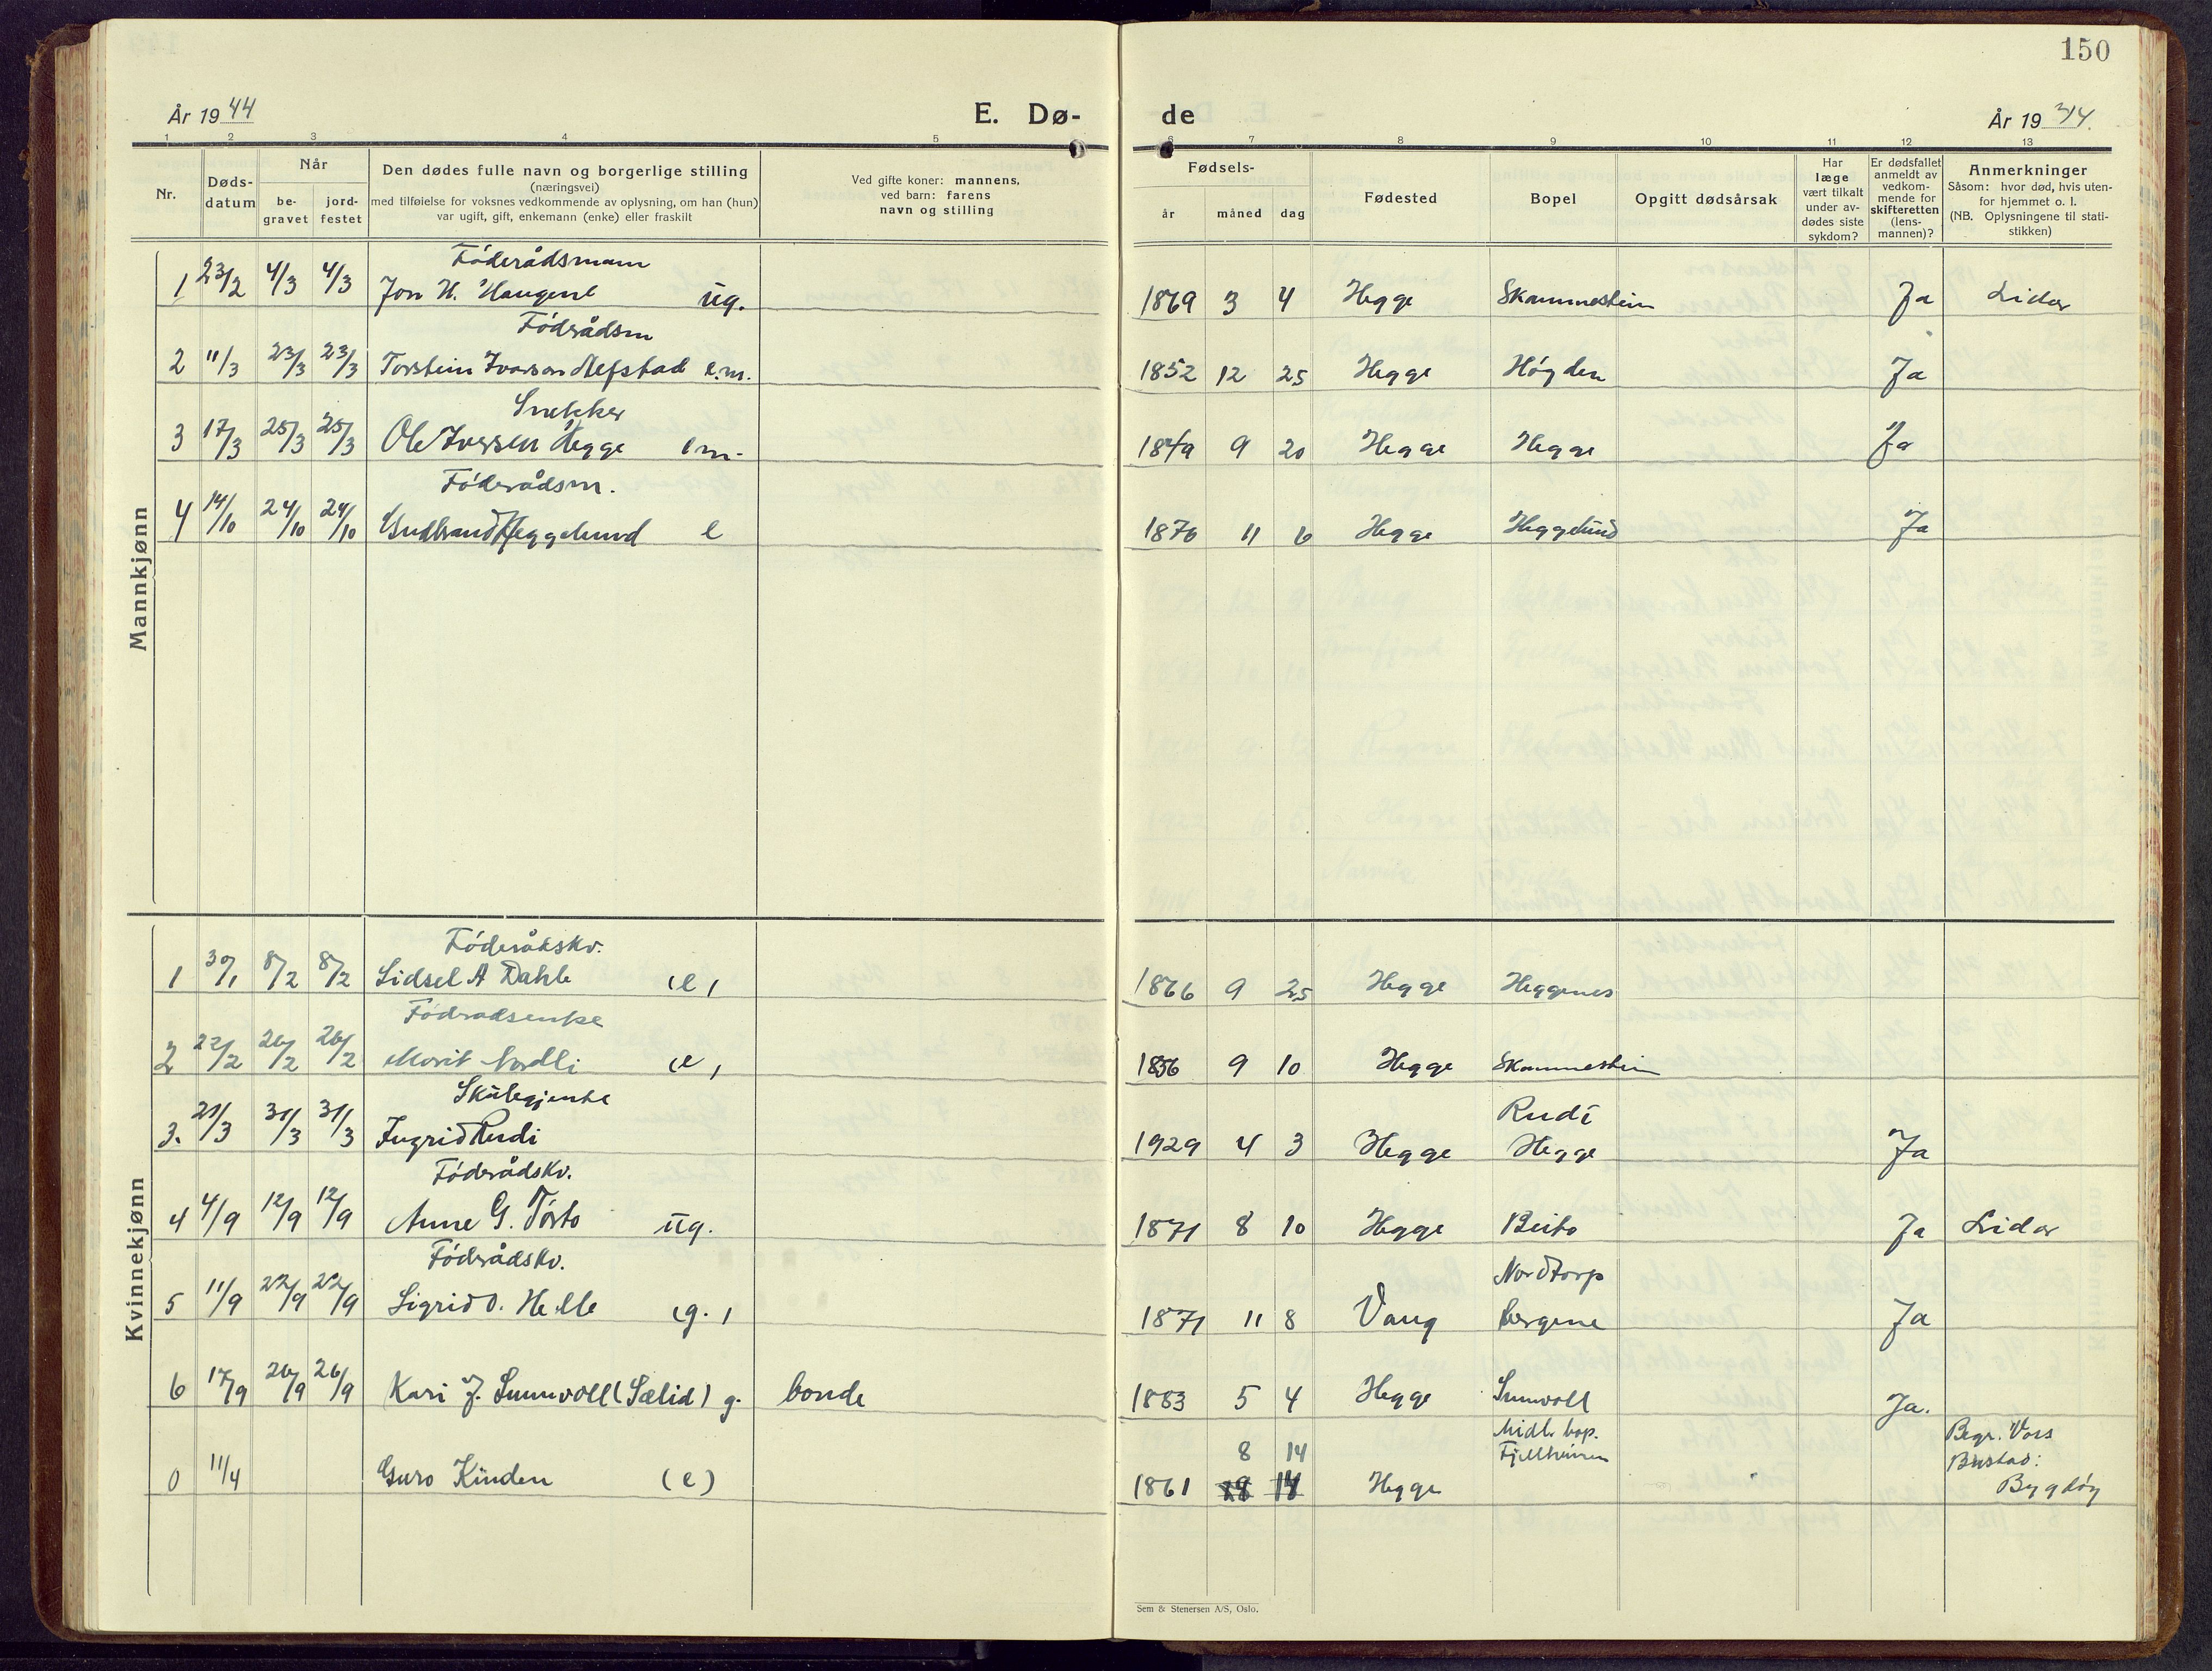 150
År 1944 E. Dø- de År 1944.
1 2 3 4 5 6 7 8 9 10 11 12 13
Nr. Døds-datum Når be-gravet jord-festet Den dødes fulle navn og borgerlige stilling (næringsvei) med tilføielse for voksnes vedkommende av oplysning, om han (hun) var ugift, gift, enkemann (enke) eller fraskilt Ved gifte koner: mannens, ved barn: farens navn og stilling Fødsels- år måned dag Fødested Bopel Opgitt dødsårsak Har læge vært tilkalt under av-dødes siste sykdom? Er dødsfallet anmeldt av vedkom-mende for skifteretten (lens-mannen)? Anmerkninger Såsom: hvor død, hvis uten-for hjemmet o. l. (NB. Oplysningene til stati-stikken)
Mannkjønn
Föderådsmann
1 23/2 4/3 4/3 Jon H. Haugene ug. 1869 3 4 Hegge Skammestein Ja Lidar
Föderådsm
2 11/3 23/3 23/3 Torstein Ivarson Hefstad e.m. 1852 12 25 Hegge Høgden Ja
Snekker
3 17/3 25/3 25/3 Ole Iversen Hegge em. 1849 9 20 Hegge Hegge Ja
Föderådsm.
4 14/10 24/10 24/10 Gudbrand Heggelund e 1870 11 6 Hegge Heggelund Ja
Kvinnekjønn
Föderåkskv.
1 30/1 8/2 8/2 Sidsel A Dahle (e) 1866 9 25 Hegge Heggenes
Födradsenke
2 22/2 26/2 26/2 Marit Nordli (e) 1856 9 10 Hegge Skammestein
Skulegjente Rudi
3. 21/3 31/3 31/3 Ingrid Rudi 1929 4 3 Hegge Hegge Ja
Föderådskv.
4 4/9 12/9 12/9 Anne G. Törto ug. 1871 8 10 Hegge Beito Ja Lidar
Föderådskv. Nordtorp
5 11/9 22/9 22/9 Sigrid O. Helle (g.) 1871 11 8 Vang Bergene Ja
6 17/9 26/9 26/9 Kari J. Sunnvoll (Sælid) g. bonde 1883 5 4 Hegge Sunvoll Ja.
8 14 Midl. bop. Fjellheimen Begr. Vass Bustad: Bygdøy
0 11/4 Guro Kinden (e) 1861 14 Hegge
Sem & Stenersen A/S, Oslo.